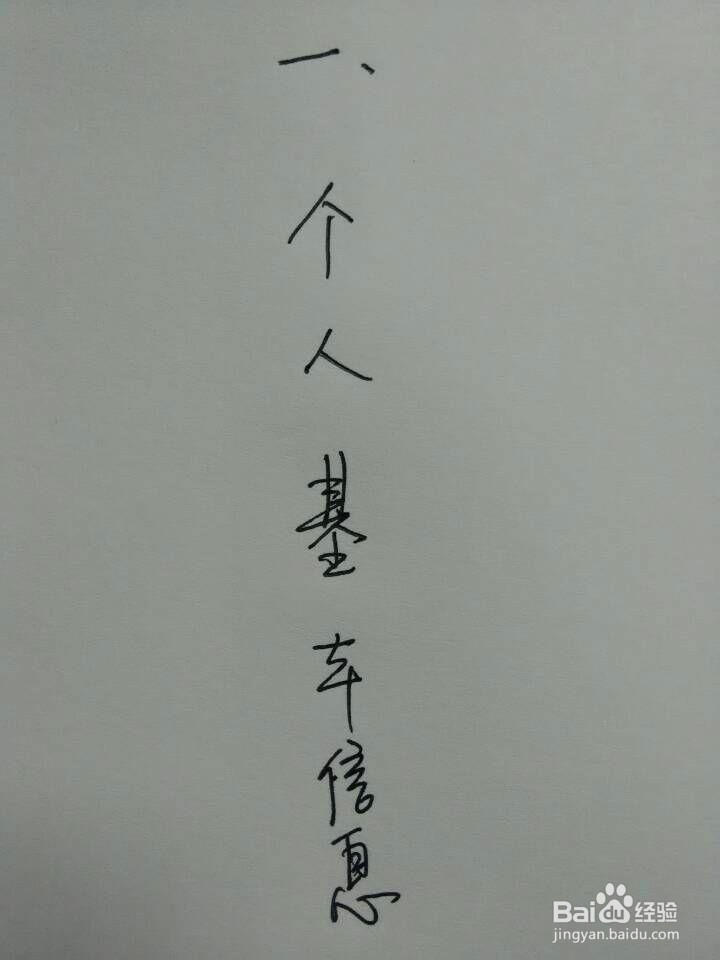 一、个人基本信息
Baidu经验
jingyan.baidu.com